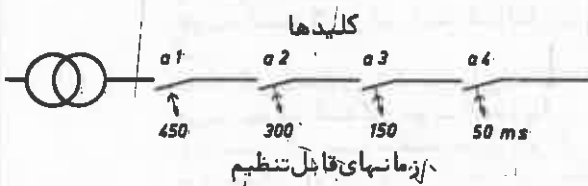 کلیدها
a1 a2 a3 a4
450 300 150 50 ms
زمانهای قابل تنظیم